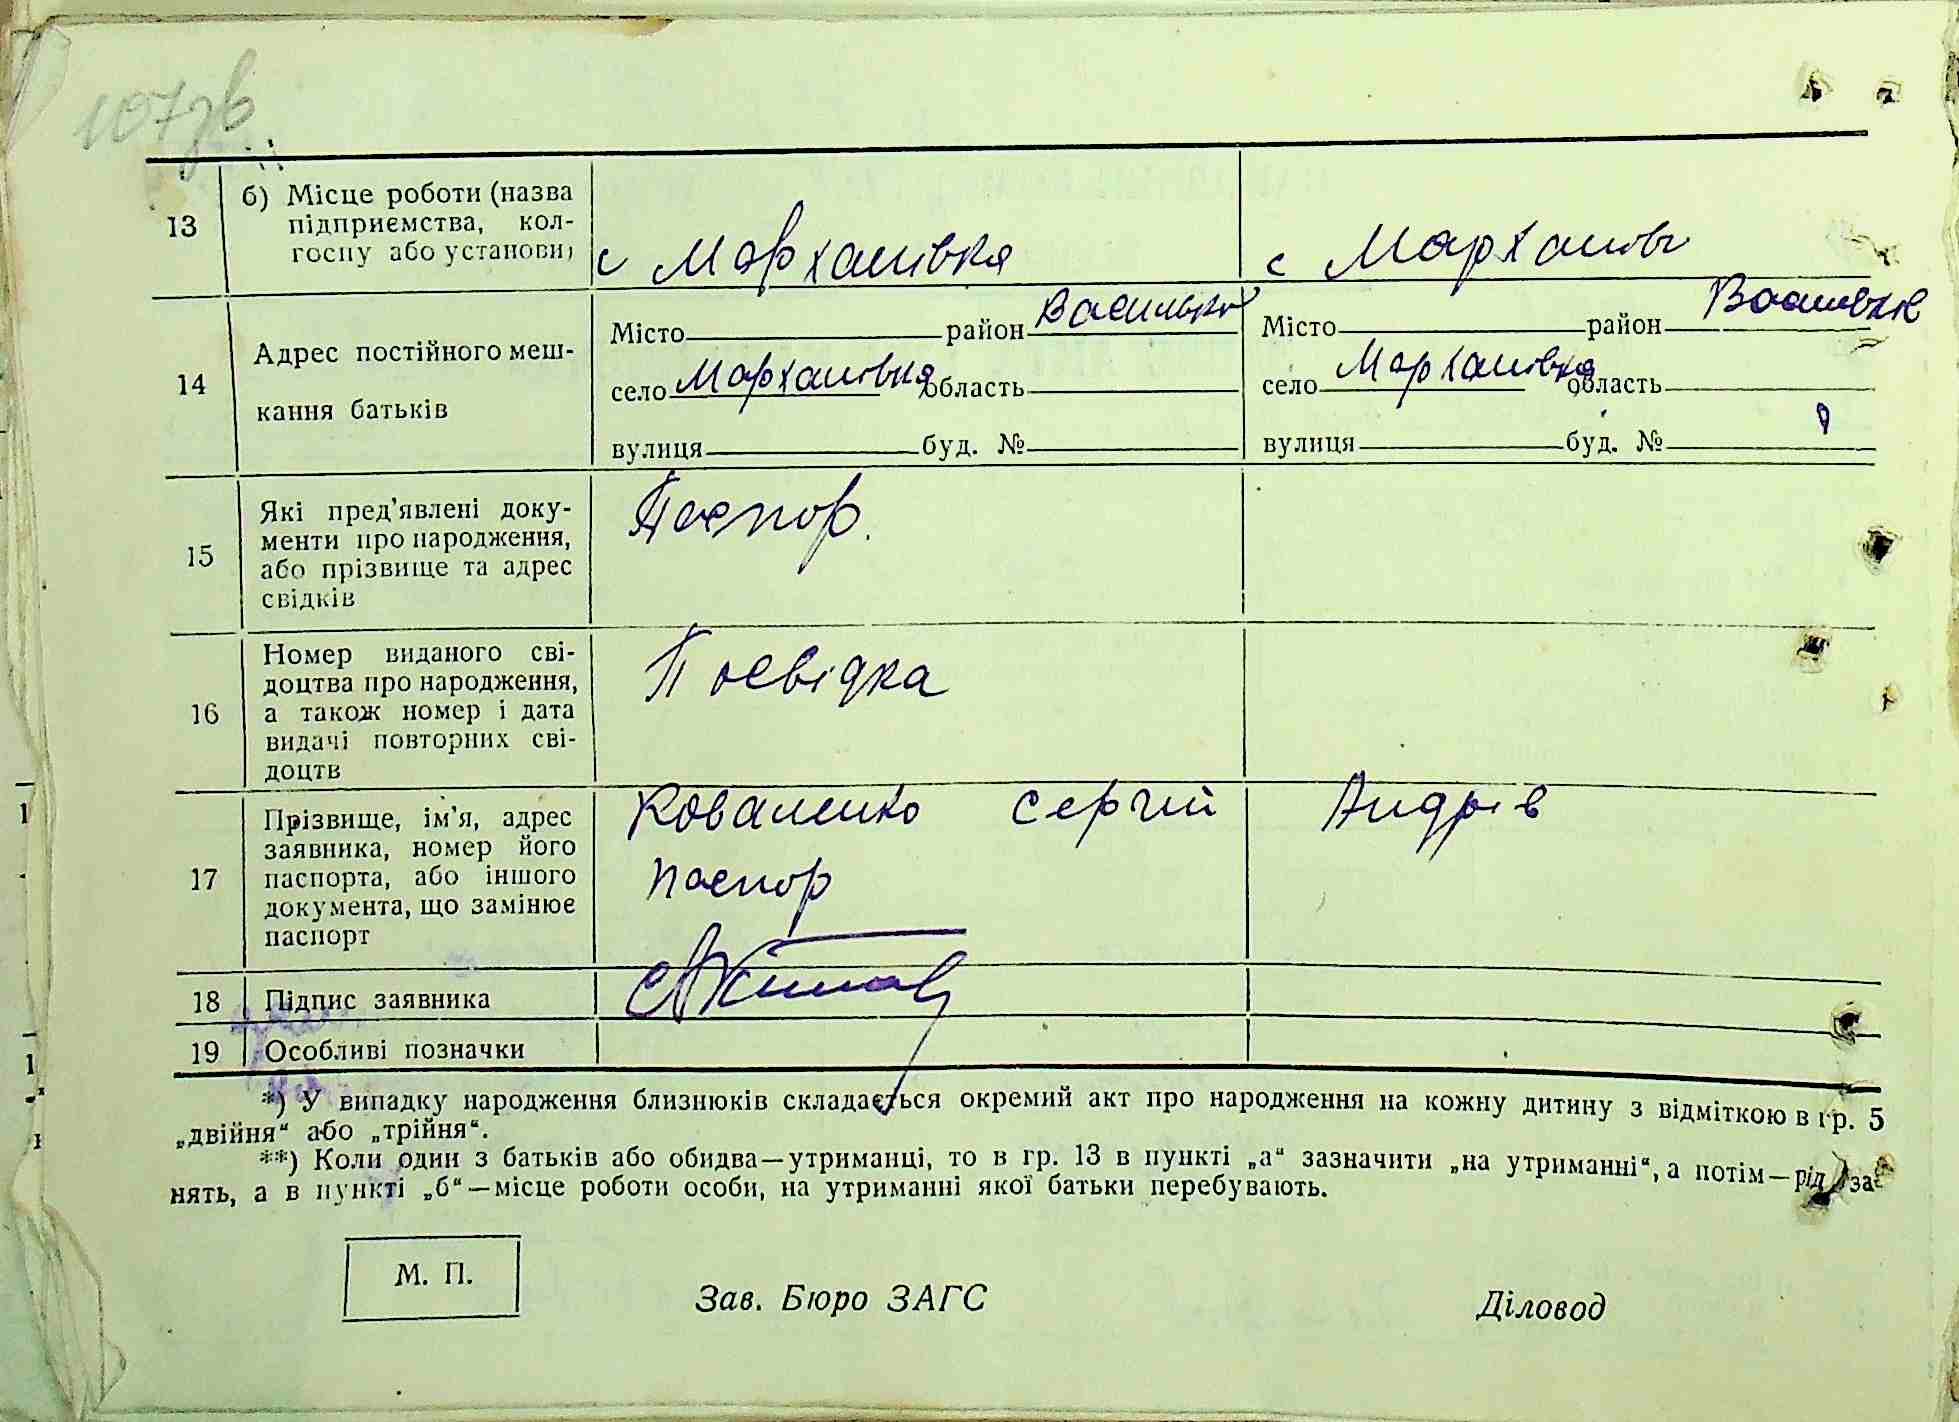 107зв
13
б) Місце роботи (назва
підприємства, кол-
госпу або установи)
с Мархаливка
с Мархаливк
14
Адрес постійного меш-
кання батьків
Місто район Василько
село Мархаливка область
вулиця буд. №
Місто район Васильк
село Мархалівка область
вулиця буд. №
15
Які пред'явлені доку-
менти про народження,
або прізвище та адрес
свідків
Паспор.
16
Номер виданого сві-
доцтва про народження,
а також номер і дата
видачі повторних сві-
доцтв
Посвідка
17
Прізвище, ім'я, адрес
заявника, номер його
паспорта, або іншого
документа, що замінює
паспорт
Коваленко Сергій Андрів
паспор
18 Підпис заявника
19 Особливі позначки
*) У випадку народження близнюків складається окремий акт про народження на кожну дитину з відміткою в гр. 5
„двійня“ або „трійня“.
**) Коли один з батьків або обидва—утриманці, то в гр. 13 в пункті „а“ зазначити „на утриманні“, а потім—рід за-
нять, а в пункті „б“—місце роботи особи, на утриманні якої батьки перебувають.
М. П.
Зав. Бюро ЗАГС
Діловод